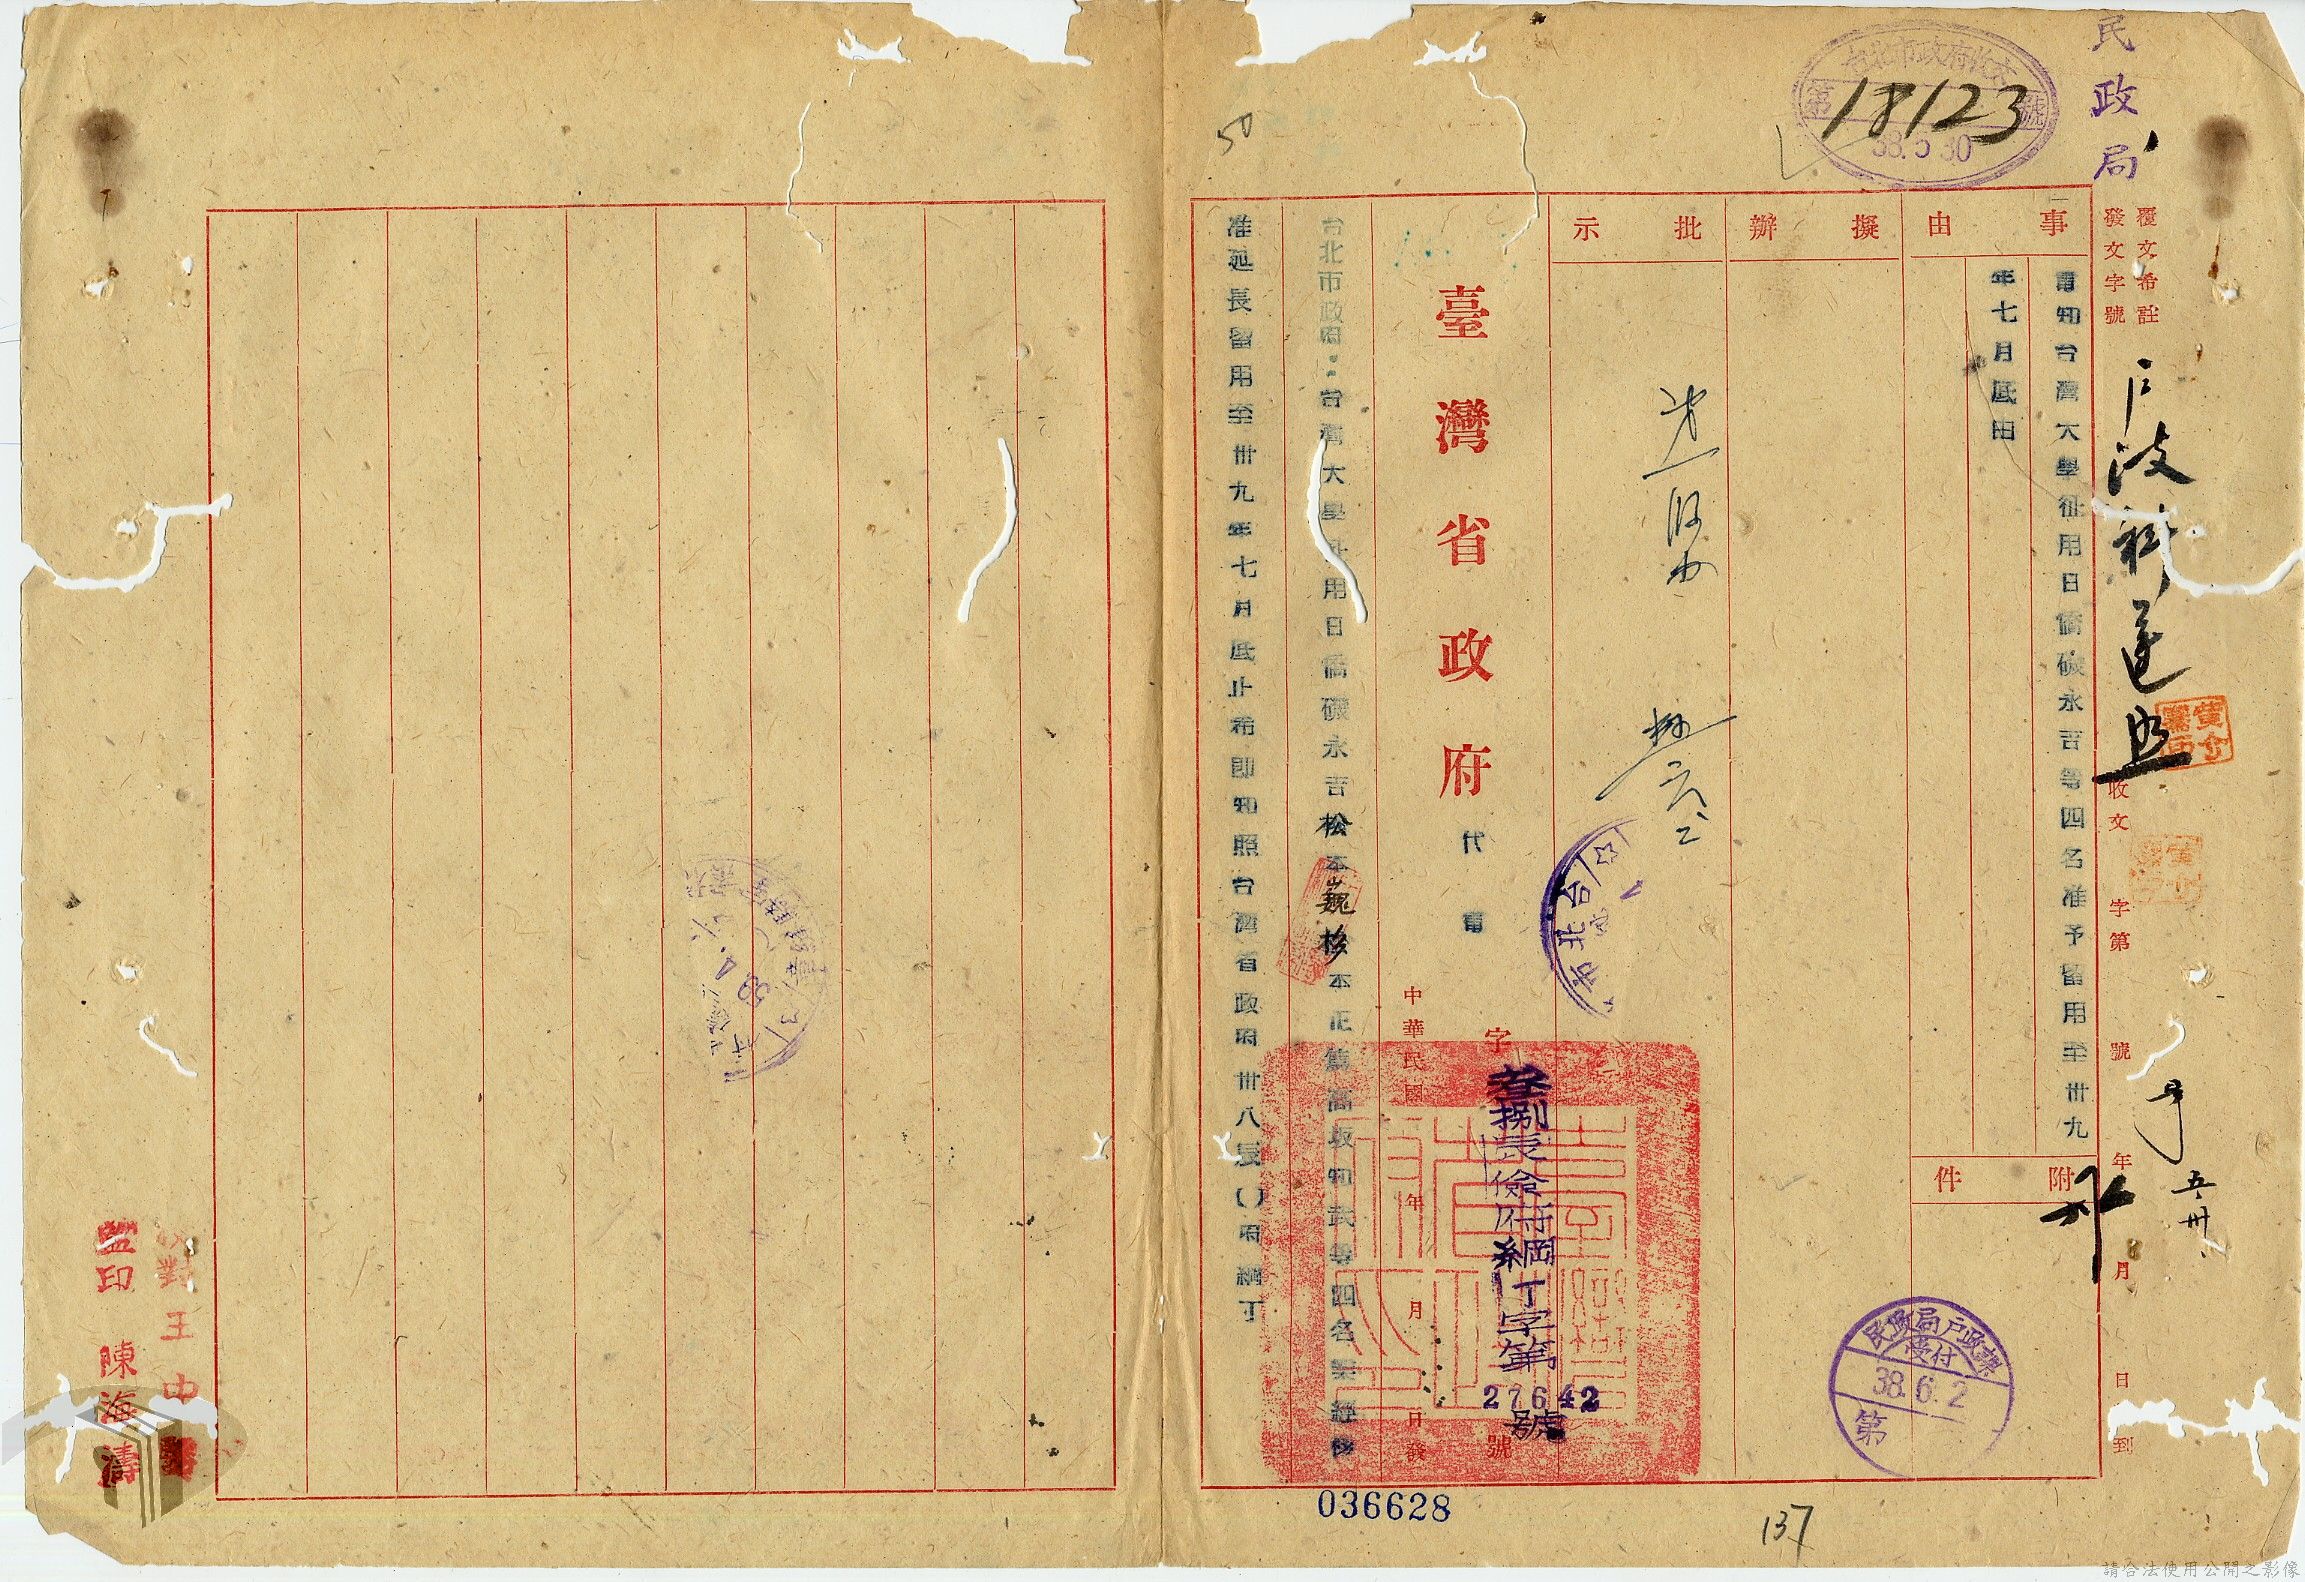 民政局
台北市政府收文
第18123號
38.5.30
覆文希註
發文字號
收文 字第 號 年 月 日到
五.卅.
事由
電知台灣大學征用日僑磯永吉等四名准予留用至卅九
年七月底由
附件
擬辦
批示
臺灣省政府代電
字
叁捌辰儉府綱丁字第
27642
號
號
中華民國 年 月 日發
台北市政府：台灣大學征用日僑磯永吉松本巍杉本正篤高坂知武等四名業經核
准延長留用至卅九年七月底止希即知照台灣省政府卅八辰()府綱丁
民政局戶政課
受付
38.6.2
第
台北市
50
036628
137
校對 王中
監印 陳海濤
請合法使用公開之影像